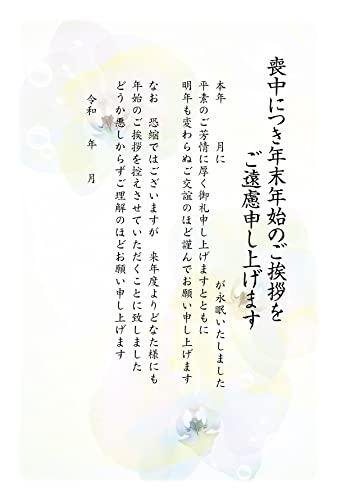 喪中につき年末年始のご挨拶を
ご遠慮申し上げます
本年　月に　　　が永眠いたしました
平素のご芳情に厚く御礼申し上げますとともに
明年も変わらぬご交誼のほど謹んでお願い申し上げます
なお　恐縮ではございますが　来年度よりどなた様にも
年始のご挨拶を控えさせていただくことに致しました
どうか悪しからずご理解のほどお願い申し上げます
令和　年　月